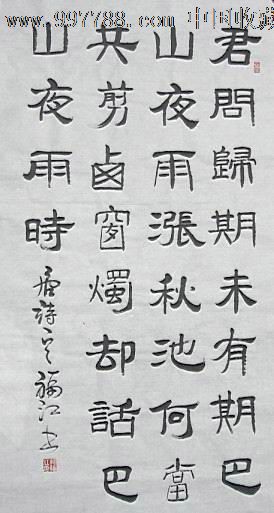 www.997788.com 中国收藏
君問歸期未有期巴
山夜雨漲秋池何當
共剪卤窗燭却話巴
山夜雨時
唐詩 福江书